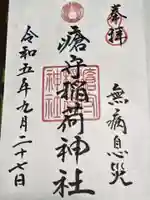 奉拝
無病息災
瘡守稲荷神社
令和五年九月二十七日